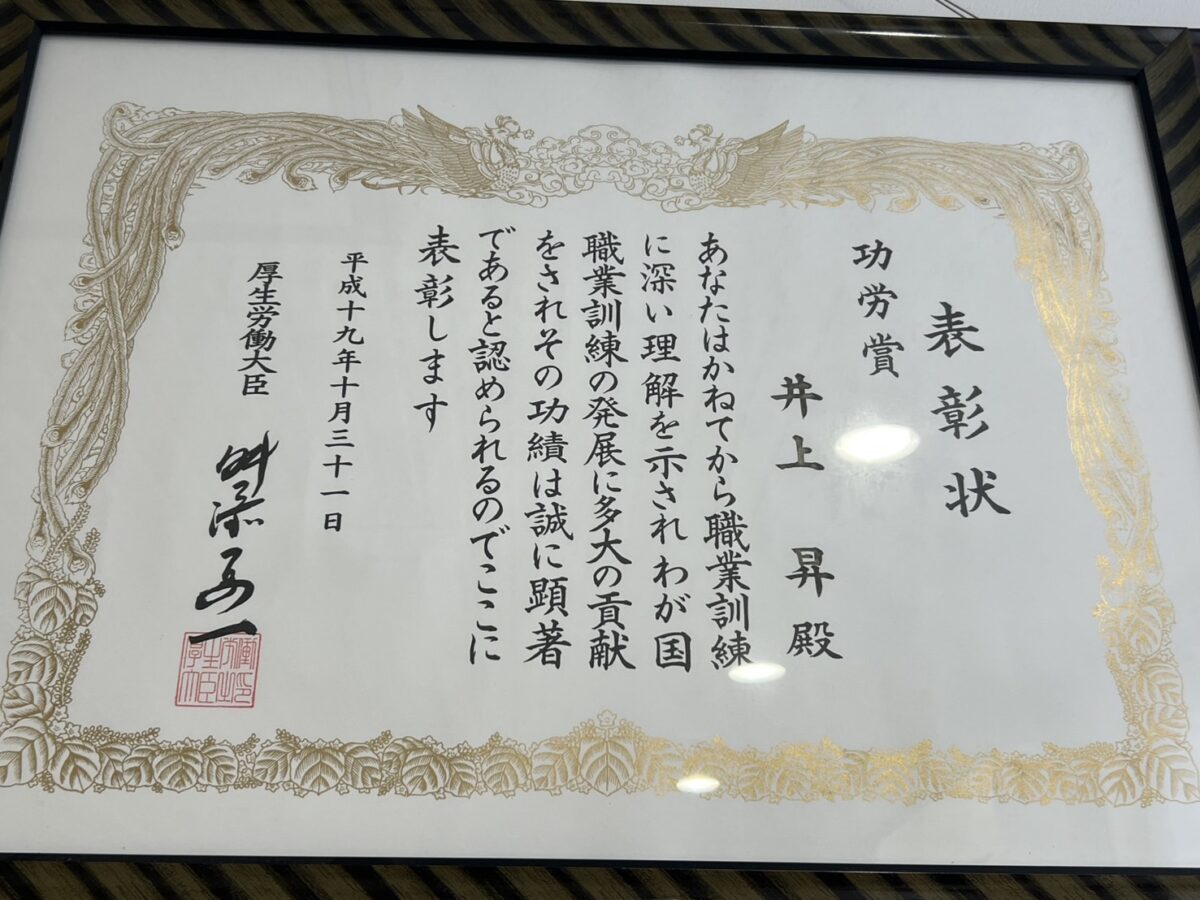 表彰状
功労賞
井上 昇 殿
あなたはかねてから職業訓練
に深い理解を示されわが国
職業訓練の発展に多大の貢献
をされその功績は誠に顕著
であると認められるのでここに
表彰します
平成十九年十月三十一日
厚生労働大臣 舛添要一
厚生労働大臣之印